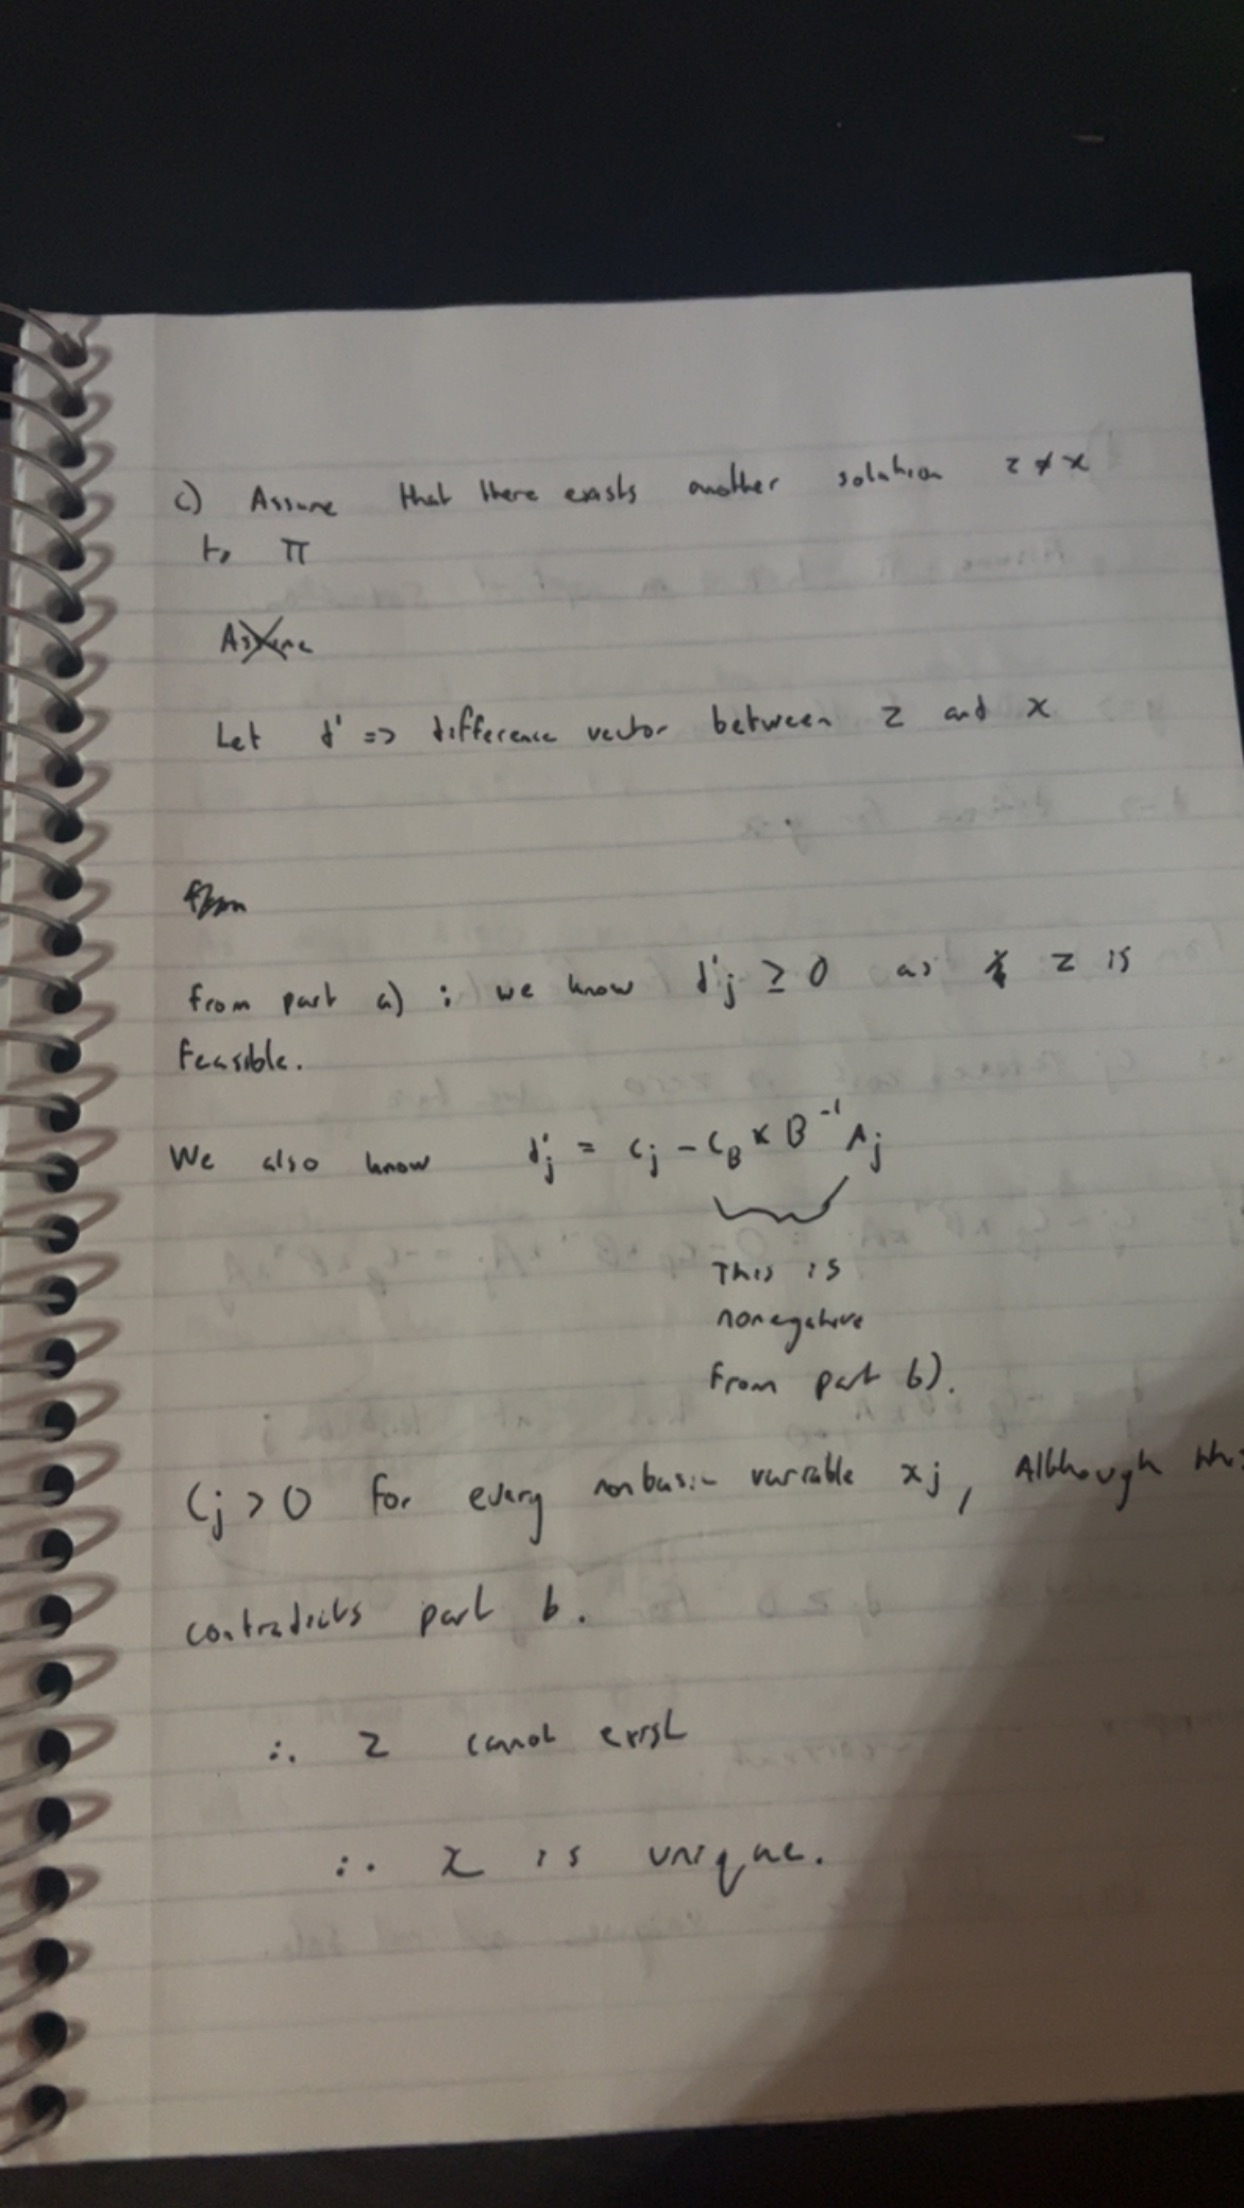 c) Assume that there exists another solution z ≠ x
to π
Assume
Let d' => difference vector between z and x
from
from part a) : we know d'j ≥ 0 as z is
feasible.
We also know d'j = cj - cB × B⁻¹ Aj
This is
nonegative
from part b).
Cj > 0 for every nonbasic variable xj, Although this
contradicts part b.
∴ z cannot exist
∴ x is unique.